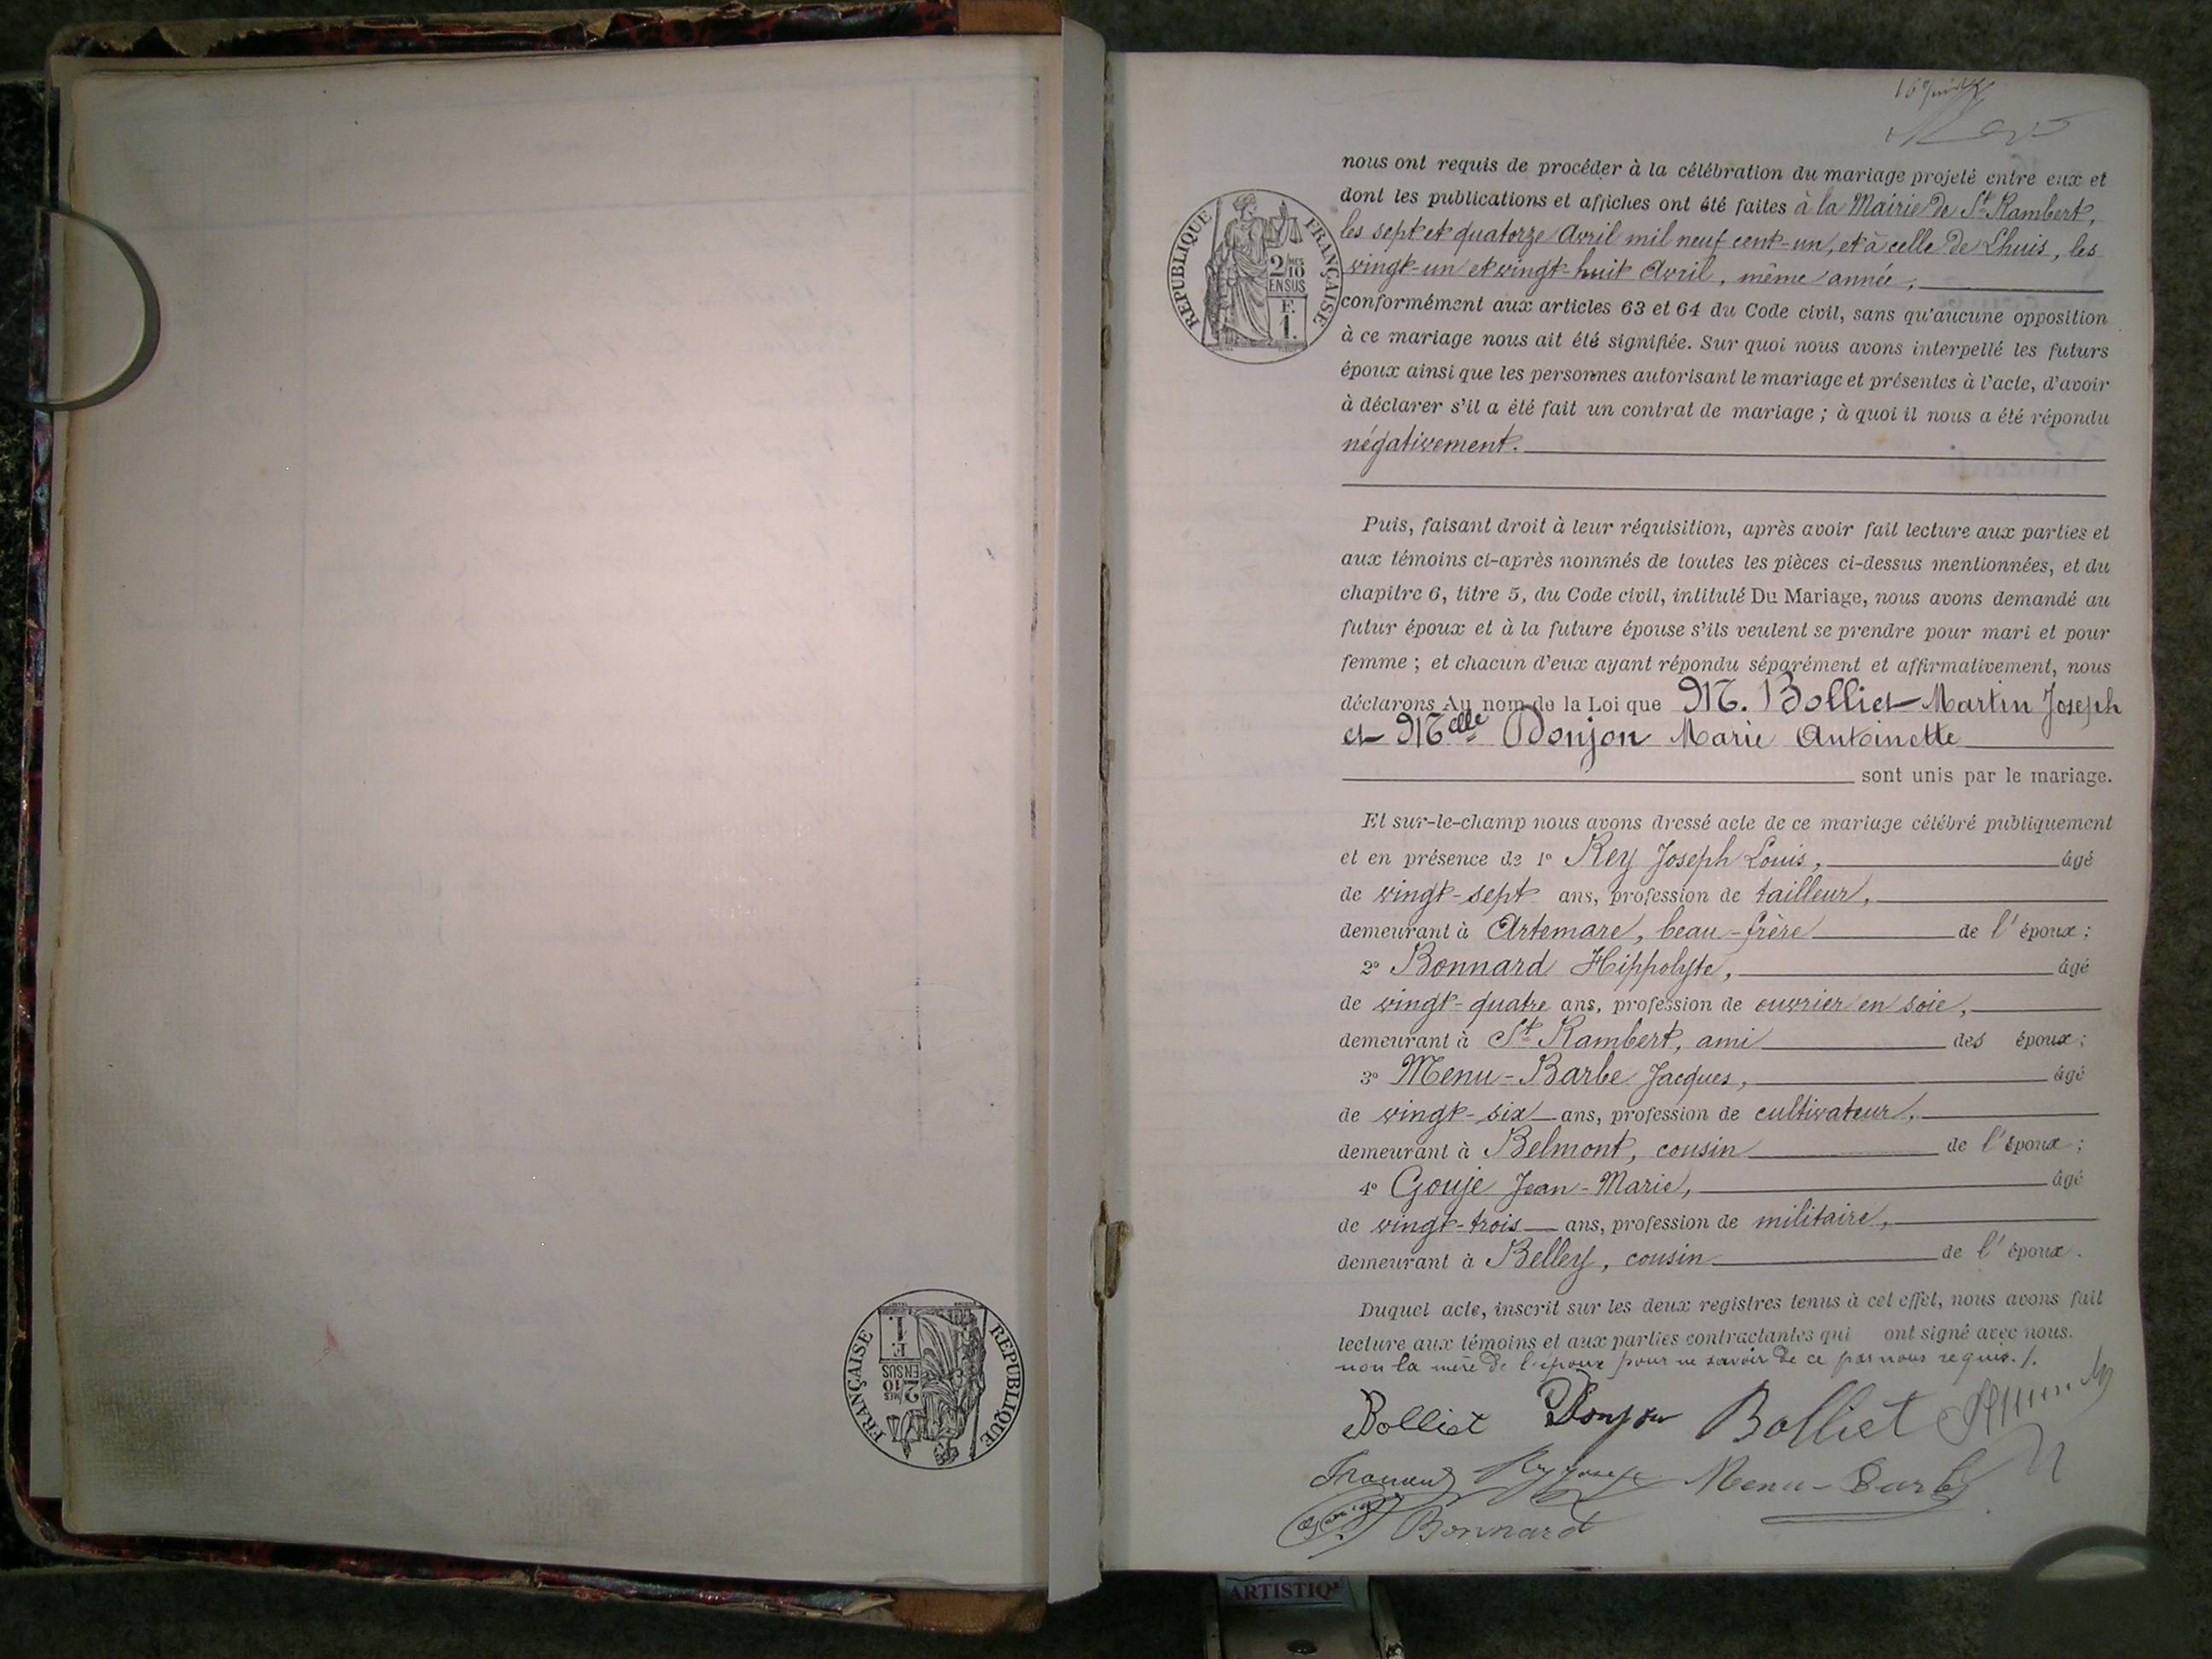 nous ont requis de procéder à la célébration du mariage projeté entre eux et
dont les publications et affiches ont été faites à la Mairie de St. Rambert,
les sept et quatorze Avril mil neuf cent-un, et à celle de Lhuis, les
vingt-un et vingt-huit Avril, même année,
conformément aux articles 63 et 64 du Code civil, sans qu'aucune opposition
à ce mariage nous ait été signifiée. Sur quoi nous avons interpellé les futurs
époux ainsi que les personnes autorisant le mariage et présentes à l'acte, d'avoir
à déclarer s'il a été fait un contrat de mariage ; à quoi il nous a été répondu
négativement.
RÉPUBLIQUE FRANÇAISE
2/10 MES
EN SUS
F.
1.
Puis, faisant droit à leur réquisition, après avoir fait lecture aux parties et
aux témoins ci-après nommés de toutes les pièces ci-dessus mentionnées, et du
chapitre 6, titre 5, du Code civil, intitulé Du Mariage, nous avons demandé au
futur époux et à la future épouse s'ils veulent se prendre pour mari et pour
femme ; et chacun d'eux ayant répondu séparément et affirmativement, nous
déclarons Au nom de la Loi que M. Bolliet Martin Joseph
et Melle Donjon Marie Antoinette
sont unis par le mariage.
Et sur-le-champ nous avons dressé acte de ce mariage célébré publiquement
et en présence de 1° Rey Joseph Louis, âgé
de vingt-sept ans, profession de tailleur,
demeurant à Artemare, beau-frère de l'époux ;
2° Bonnard Hippolyte, âgé
de vingt-quatre ans, profession de ouvrier en soie,
demeurant à St Rambert, ami des époux ;
3° Menu-Barbe Jacques, âgé
de vingt-six ans, profession de cultivateur,
demeurant à Belmont, cousin de l'époux ;
4° Gouje Jean-Marie, âgé
de vingt-trois ans, profession de militaire,
demeurant à Belley, cousin de l'époux.
Duquel acte, inscrit sur les deux registres tenus à cet effet, nous avons fait
lecture aux témoins et aux parties contractantes qui ont signé avec nous.
non la mère de l'époux pour ne savoir de ce par nous requis./.
Bolliet Donjon Bolliet
Rey Joseph Menu-Barbe
Bonnard
RÉPUBLIQUE FRANÇAISE
2/10 MES
EN SUS
F.
1.
ARTISTIQ